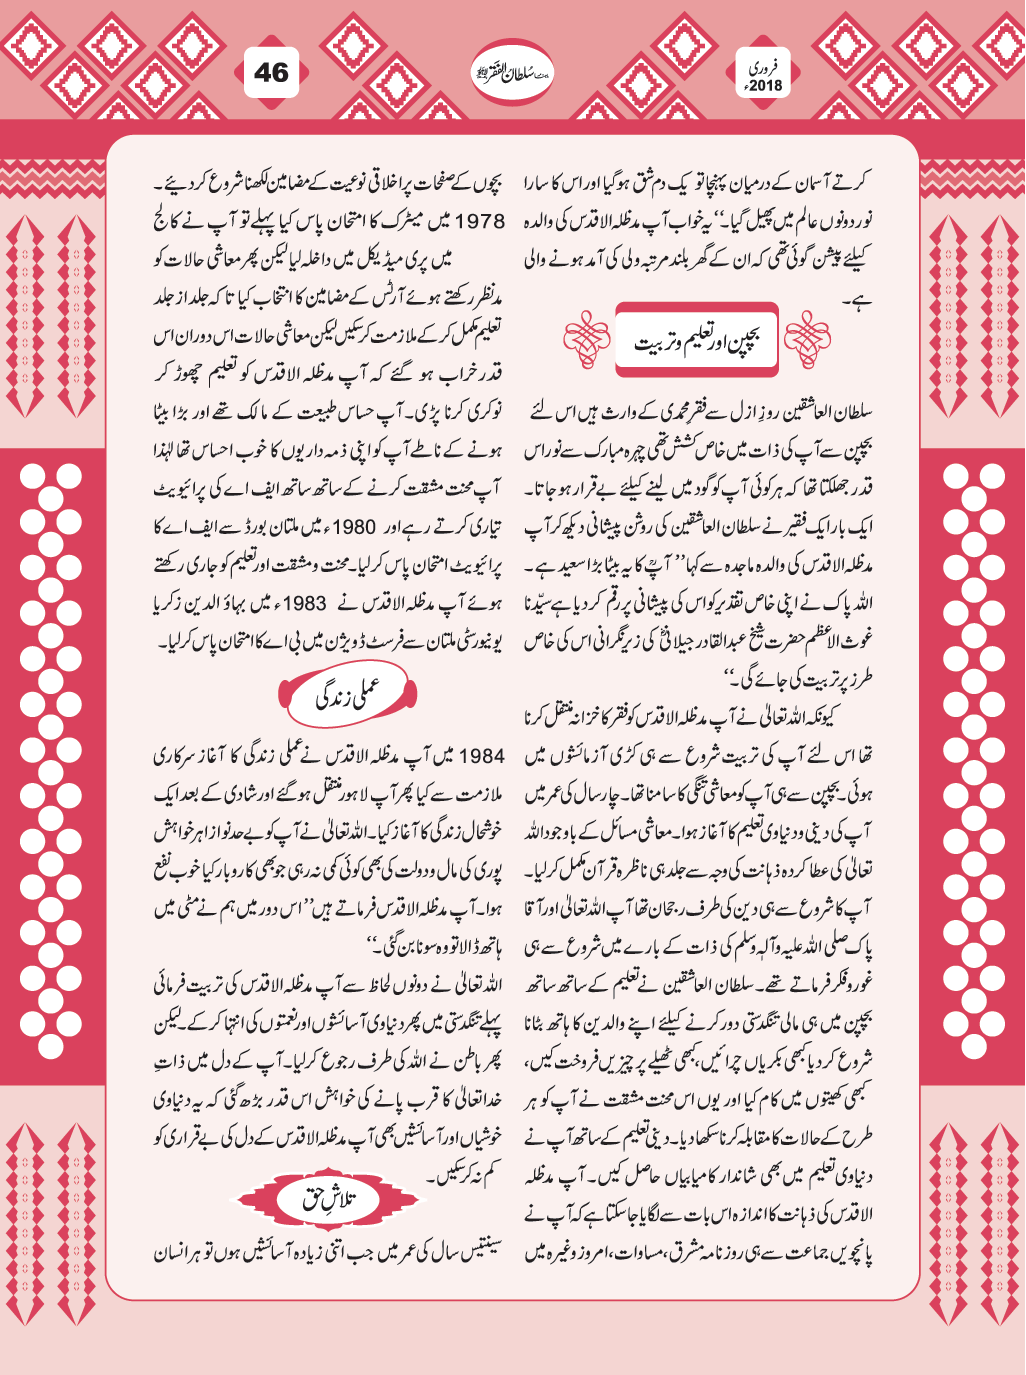 46
سُلطان الفَقر
فروری
2018ء
کرتے آسمان کے درمیان پہنچا تو یک دم شق ہوگیا اور اس کا سارا
نور دونوں عالم میں پھیل گیا۔‘‘ یہ خواب آپ مدظلہ الاقدس کی والدہ
کیلئے پیشن گوئی تھی کہ ان کے گھر بلند مرتبہ ولی کی آمد ہونے والی
ہے۔
بچپن اور تعلیم و تربیت
سلطان العاشقین روزِ ازل سے فقرِ محمدی کے وارث ہیں اس لئے
بچپن سے آپ کی ذات میں خاص کشش تھی چہرہ مبارک سے نور اس
قدر جھلکتا تھا کہ ہر کوئی آپ کو گود میں لینے کیلئے بے قرار ہو جاتا۔
ایک بار ایک فقیر نے سلطان العاشقین کی روشن پیشانی دیکھ کر آپ
مدظلہ الاقدس کی والدہ ماجدہ سے کہا’’ آپؒ کا یہ بیٹا بڑا سعید ہے۔
اللہ پاک نے اپنی خاص تقدیر کو اس کی پیشانی پر رقم کر دیا ہے سیّدنا
غوث الاعظم حضرت شیخ عبدالقادر جیلانیؓ کی زیرِ نگرانی اس کی خاص
طرز پر تربیت کی جائے گی۔‘‘
کیونکہ اللہ تعالیٰ نے آپ مدظلہ الاقدس کو فقر کا خزانہ منتقل کرنا
تھا اس لئے آپ کی تربیت شروع سے ہی کڑی آزمائشوں میں
ہوئی۔ بچپن سے ہی آپ کو معاشی تنگی کا سامنا تھا۔ چار سال کی عمر میں
آپ کی دینی و دنیاوی تعلیم کا آغاز ہوا۔ معاشی مسائل کے باوجود اللہ
تعالیٰ کی عطا کردہ ذہانت کی وجہ سے جلد ہی ناظرہ قرآن مکمل کرلیا۔
آپ کا شروع سے ہی دین کی طرف رجحان تھا آپ اللہ تعالیٰ اور آقا
پاک صلی اللہ علیہ وآلہٖ وسلم کی ذات کے بارے میں شروع سے ہی
غور و فکر فرماتے تھے۔ سلطان العاشقین نے تعلیم کے ساتھ ساتھ
بچپن میں ہی مالی تنگدستی دور کرنے کیلئے اپنے والدین کا ہاتھ بٹانا
شروع کر دیا کبھی بکریاں چرائیں، کبھی ٹھیلے پر چیزیں فروخت کیں،
کبھی کھیتوں میں کام کیا اور یوں اس محنت مشقت نے آپ کو ہر
طرح کے حالات کا مقابلہ کرنا سکھا دیا۔ دینی تعلیم کے ساتھ آپ نے
دنیاوی تعلیم میں بھی شاندار کامیابیاں حاصل کیں۔ آپ مدظلہ
الاقدس کی ذہانت کا اندازہ اس بات سے لگایا جا سکتا ہے کہ آپ نے
پانچویں جماعت سے ہی روزنامہ مشرق، مساوات، امروز وغیرہ میں
بچوں کے صفحات پر اخلاقی نوعیت کے مضامین لکھنا شروع کر دیئے۔
1978 میں میٹرک کا امتحان پاس کیا پہلے تو آپ نے کالج
میں پری میڈیکل میں داخلہ لیا لیکن پھر معاشی حالات کو
مدنظر رکھتے ہوئے آرٹس کے مضامین کا انتخاب کیا تاکہ جلد از جلد
تعلیم مکمل کر کے ملازمت کر سکیں لیکن معاشی حالات اس دوران اس
قدر خراب ہو گئے کہ آپ مدظلہ الاقدس کو تعلیم چھوڑ کر
نوکری کرنا پڑی۔ آپ حساس طبیعت کے مالک تھے اور بڑا بیٹا
ہونے کے ناطے آپ کو اپنی ذمہ داریوں کا خوب احساس تھا لہٰذا
آپ محنت مشقت کرنے کے ساتھ ساتھ ایف اے کی پرائیویٹ
تیاری کرتے رہے اور 1980ء میں ملتان بورڈ سے ایف اے کا
پرائیویٹ امتحان پاس کرلیا۔ محنت و مشقت اور تعلیم کو جاری رکھتے
ہوئے آپ مدظلہ الاقدس نے 1983ء میں بہاؤ الدین زکریا
یونیورسٹی ملتان سے فرسٹ ڈویژن میں بی اے کا امتحان پاس کرلیا۔
عملی زندگی
1984 میں آپ مدظلہ الاقدس نے عملی زندگی کا آغاز سرکاری
ملازمت سے کیا پھر آپ لاہور منتقل ہوگئے اور شادی کے بعد ایک
خوشحال زندگی کا آغاز کیا۔ اللہ تعالیٰ نے آپ کو بے حد نوازا ہر خواہش
پوری کی مال و دولت کی بھی کوئی کمی نہ رہی جو بھی کاروبار کیا خوب نفع
ہوا۔ آپ مدظلہ الاقدس فرماتے ہیں’’ اس دور میں ہم نے مٹی میں
ہاتھ ڈالا تو وہ سونا بن گئی۔‘‘
اللہ تعالیٰ نے دونوں لحاظ سے آپ مدظلہ الاقدس کی تربیت فرمائی
پہلے تنگدستی میں پھر دنیاوی آسائشوں اور نعمتوں کی انتہا کر کے۔ لیکن
پھر باطن نے اللہ کی طرف رجوع کرلیا۔ آپ کے دل میں ذاتِ
خدا تعالیٰ کا قرب پانے کی خواہش اس قدر بڑھ گئی کہ یہ دنیاوی
خوشیاں اور آسائشیں بھی آپ مدظلہ الاقدس کے دل کی بے قراری کو
کم نہ کر سکیں۔
تلاشِ حق
سینتیس سال کی عمر میں جب اتنی زیادہ آسائشیں ہوں تو ہر انسان